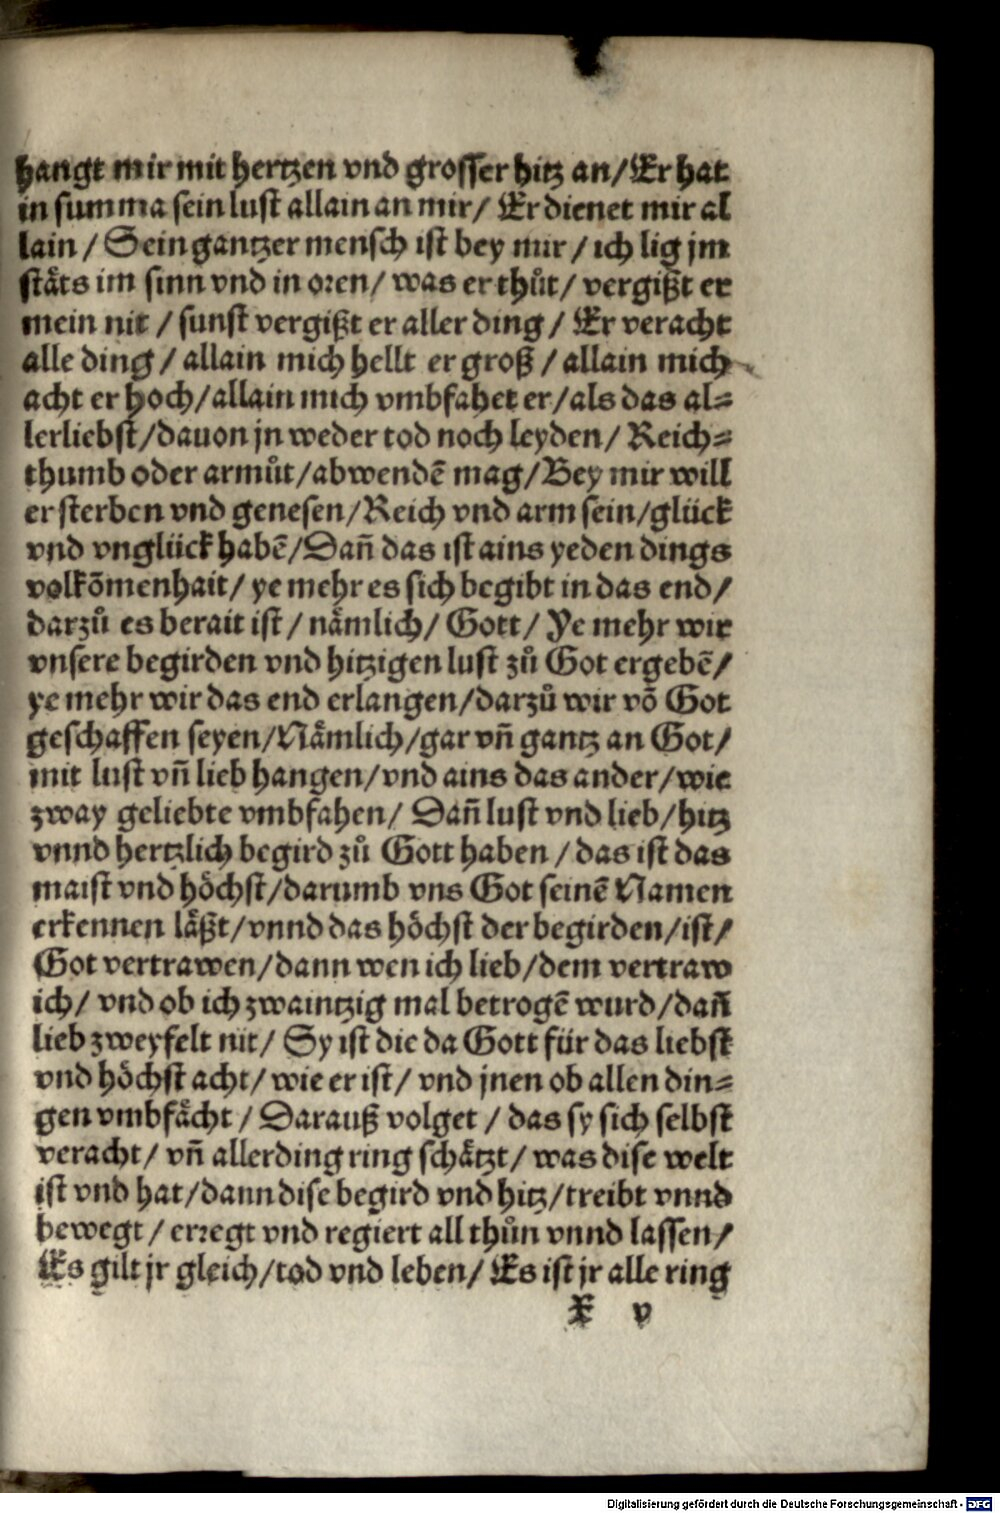 hangt mir mit hertzen vnd grosser hitz an/Er hat
in summa sein lust allain an mir/ Er dienet mir al
lain / Sein gantzer mensch ist bey mir / ich lig jm
stäts im sinn vnd in oren/ was er thůt/ vergißt er
mein nit / sunst vergißt er aller ding / Er veracht
alle ding / allain mich hellt er groß / allain mich
acht er hoch/allain mich vmbfahet er/als das al⸗
lerliebst/dauon jn weder tod noch leyden/ Reich⸗
thumb oder armůt/abwendē mag/Bey mir will
er sterben vnd genesen/Reich vnd arm sein/glück
vnd vnglück habē/Dañ das ist ains yeden dings
volkōmenhait/ ye mehr es sich begibt in das end/
darzů es berait ist / nämlich/ Gott/ Ye mehr wir
vnsere begirden vnd hitzigen lust zů Got ergebē/
ye mehr wir das end erlangen/darzů wir vō Got
geschaffen seyen/Nämlich/gar vñ gantz an Got/
mit lust vñ lieb hangen/vnd ains das ander/wie
zway geliebte vmbfahen/ Dañ lust vnd lieb/hitz
vnnd hertzlich begird zů Gott haben / das ist das
maist vnd höchst/darumb vns Got seinē Namen
erkennen läßt/vnnd das höchst der begirden/ist/
Got vertrawen/dann wen ich lieb/dem vertraw
ich/ vnd ob ich zwaintzig mal betrogē wurd/dañ
lieb zweyfelt nit/ Sy ist die da Gott für das liebst
vnd höchst acht/ wie er ist/ vnd jnen ob allen din⸗
gen vmbfächt / Darauß volget / das sy sich selbst
veracht/ vñ allerding ring schätzt/ was dise welt
ist vnd hat/dann dise begird vnd hitz/treibt vnnd
bewegt / erregt vnd regiert all thůn vnnd lassen/
Es gilt jr gleich/tod vnd leben/ Es ist jr alle ring
X v
Digitalisierung gefördert durch die Deutsche Forschungsgemeinschaft - DFG